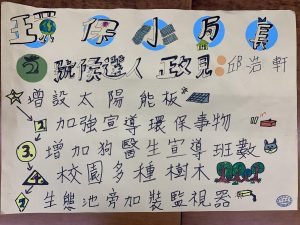 環保小局長
2號候選人 政見:邱浩軒
增設太陽能板
2.加強宣導環保事物
3.增加狗醫生宣導班數
4.校園多種樹木
5.生態池旁加裝監視器